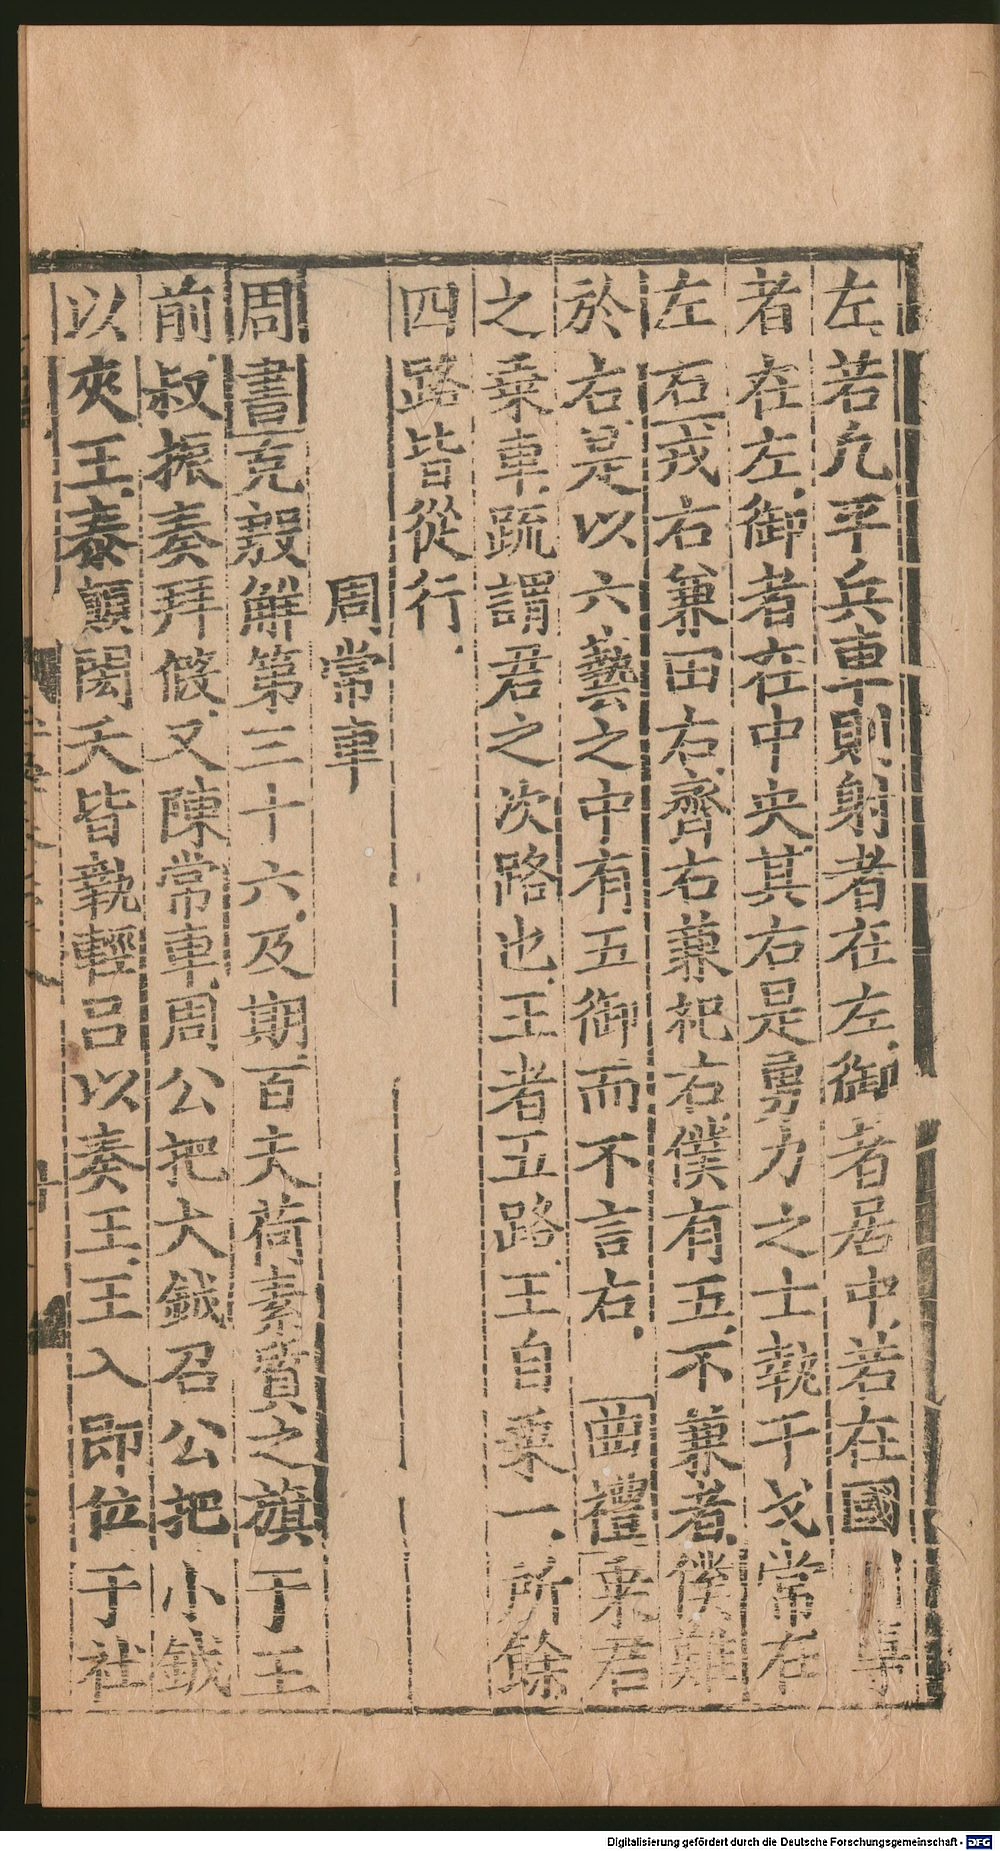 左、若凢平兵車則射者在左、御者居中、若在國、則尊
者在左、御者在中央、其右是勇力之士執干戈常在
左右戎右兼田右、齊右兼祀右、僕有五、不兼者、僕難
於右、是以六藝之中有五御而不言右、 曲禮乗君
之乗車、疏謂君之次路也、王者五路、王自乗一、所餘
四路皆從行、
周常車
周書克殷解第三十六、及期、百夫荷素質之旗于王
前、叔振奏拜假、又陳常車、周公把大鉞召公把小鉞
以夾王、泰顛閎夭皆執輕呂以奏王、王入即位于社
Digitalisierung gefördert durch die Deutsche Forschungsgemeinschaft - DFG